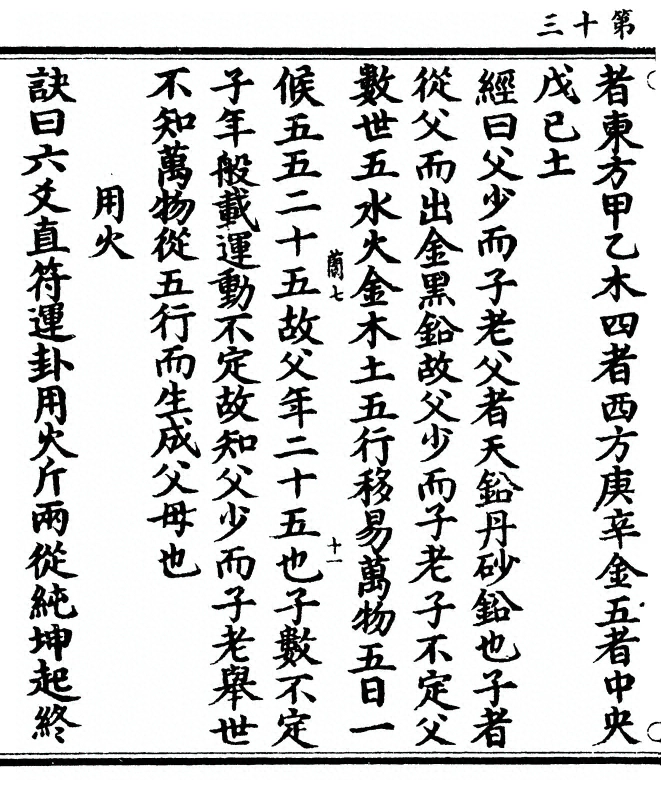 第十三
者東方甲乙木四者西方庚辛金五者中央
戊己土
經曰父少而子老父者天鉛丹砂鉛也子者
從父而出金黑鉛故父少而子老子不定父
數世五水火金木土五行移易萬物五日一
蘭七
十一
候五五二十五故父年二十五也子數不定
子年般載運動不定故知父少而子老舉世
不知萬物從五行而生成父母也
用火
訣曰六爻直符運卦用火斤兩從純坤起終